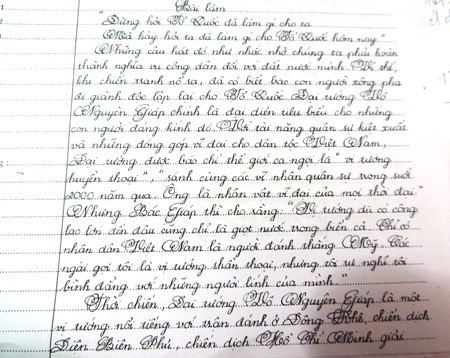 Bài làm
"Đừng hỏi Tổ Quốc đã làm gì cho ta
Mà hãy hỏi ta đã làm gì cho Tổ Quốc hôm nay."
Những câu hát đó như nhắc nhở chúng ta phải hoàn
thành nghĩa vụ công dân đối với đất nước mình. Vì thế,
khi chiến tranh nổ ra, đã có biết bao con người xông pha
đi giành độc lập lại cho Tổ Quốc. Đại tướng Võ
Nguyên Giáp chính là đại diện tiêu biểu cho những
con người đáng kính đó. Với tài năng quân sự kiệt xuất
và những đóng góp vĩ đại cho dân tộc Việt Nam,
Đại tướng được báo chí thế giới ca ngợi là "vị tướng
huyền thoại", "sánh cùng các vĩ nhân quân sự trong suốt
2000 năm qua. Ông là nhân vật vĩ đại của mọi thời đại."
Nhưng Bác Giáp thì cho rằng: "Vị tướng dù có công
lao lớn đến đâu cũng chỉ là giọt nước trong biển cả. Chỉ có
nhân dân Việt Nam là người đánh thắng Mỹ. Các
ngài gọi tôi là vị tướng thần thoại, nhưng tôi tự nghĩ tôi
bình đẳng với những người lính của mình."
Thời chiến, Đại tướng Võ Nguyên Giáp là một
vị tướng nổi tiếng với trận đánh ở Đông Khê, chiến dịch
Điện Biên Phủ, chiến dịch Hồ Chí Minh giải